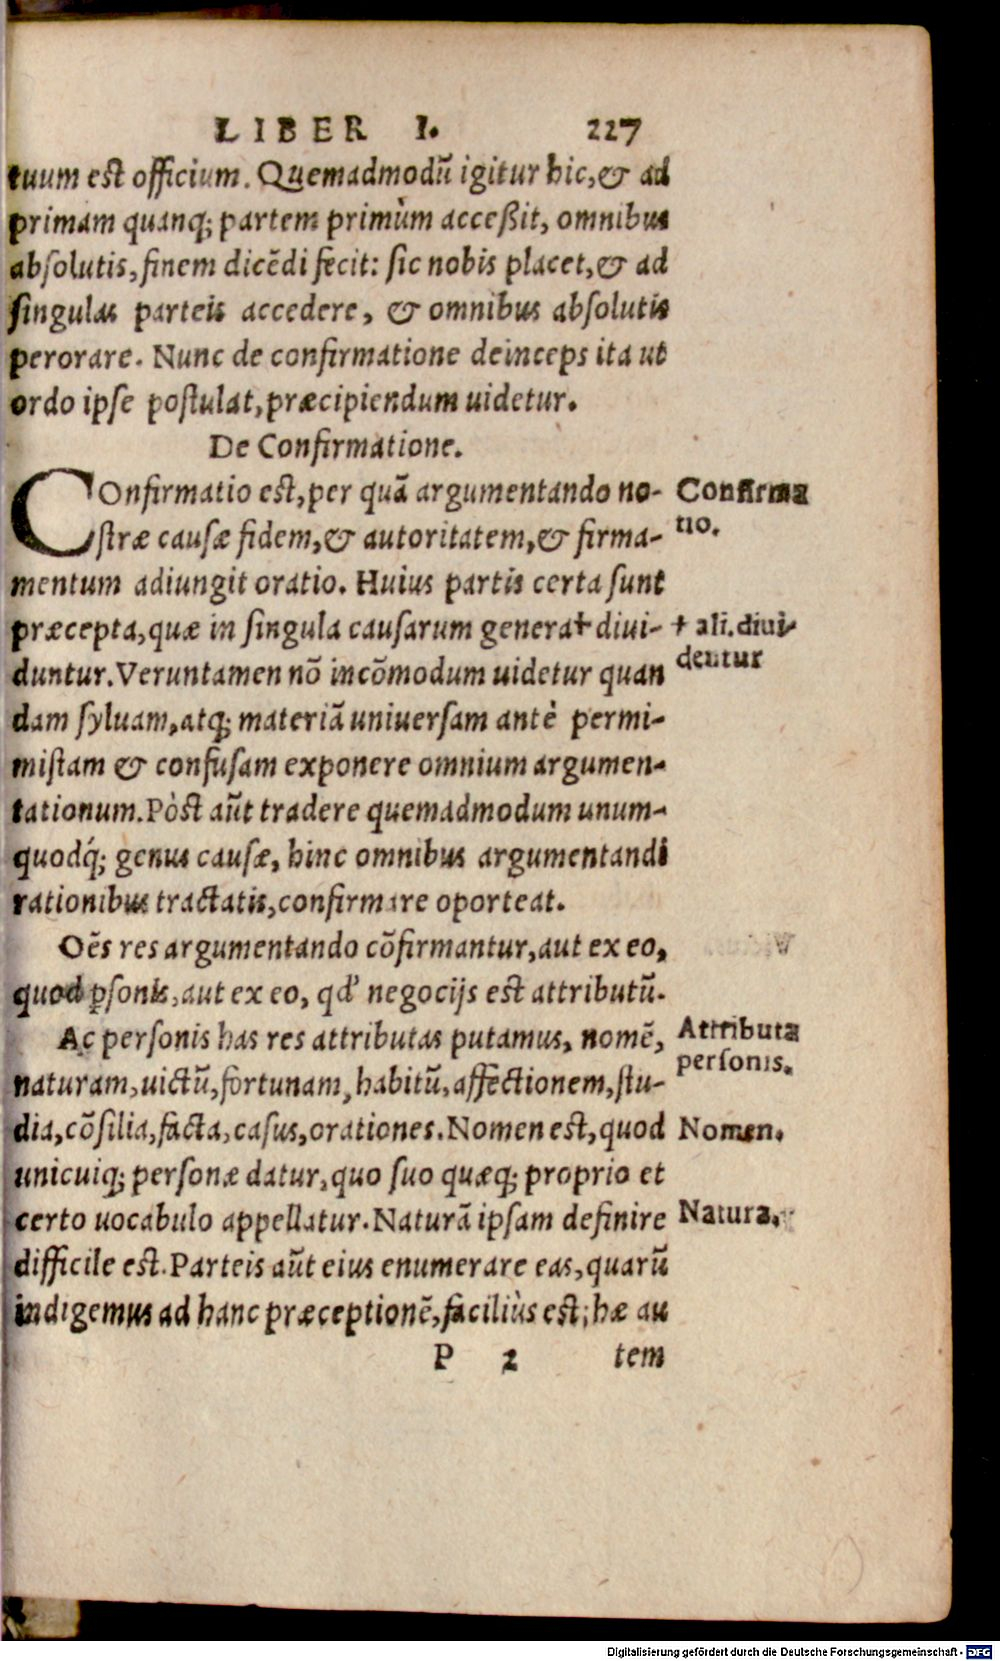 LIBER I. 227
tuum est officium. Quemadmodū igitur hic, & ad
primam quanq; partem primùm acceßit, omnibus
absolutis, finem dicēdi fecit: sic nobis placet, & ad
singulas parteis accedere, & omnibus absolutis
perorare. Nunc de confirmatione deinceps ita ut
ordo ipse postulat, præcipiendum uidetur.
De Confirmatione.
COnfirmatio est, per quā argumentando no-
Confirma
stræ causæ fidem, & autoritatem, & firma-
tio.
mentum adiungit oratio. Huius partis certa sunt
præcepta, quæ in singula causarum genera✝ diui-
✝ ali. diui-
duntur. Veruntamen nō incōmodum uidetur quan
dentur
dam syluam, atq; materiā uniuersam antè permi-
mistam & confusam exponere omnium argumen-
tationum. Pòst aūt tradere quemadmodum unum-
quodq́; genus causæ, hinc omnibus argumentandi
rationibus tractatis, confirmare oporteat.
Oēs res argumentando cōfirmantur, aut ex eo,
quod ꝑsonis, aut ex eo, qd' negocijs est attributū.
Ac personis has res attributas putamus, nomē,
Attributa
personis.
naturam, uictū, fortunam, habitū, affectionem, stu-
dia, cōsilia, facta, casus, orationes. Nomen est, quod
Nomen.
unicuiq; personæ datur, quo suo quæq; proprio et
certo uocabulo appellatur. Naturā ipsam definire
Natura.
difficile est. Parteis aūt eius enumerare eas, quarū
indigemus ad hanc præceptionē, faciliùs est; hæ au
P 2 tem
Digitalisierung gefördert durch die Deutsche Forschungsgemeinschaft - DFG